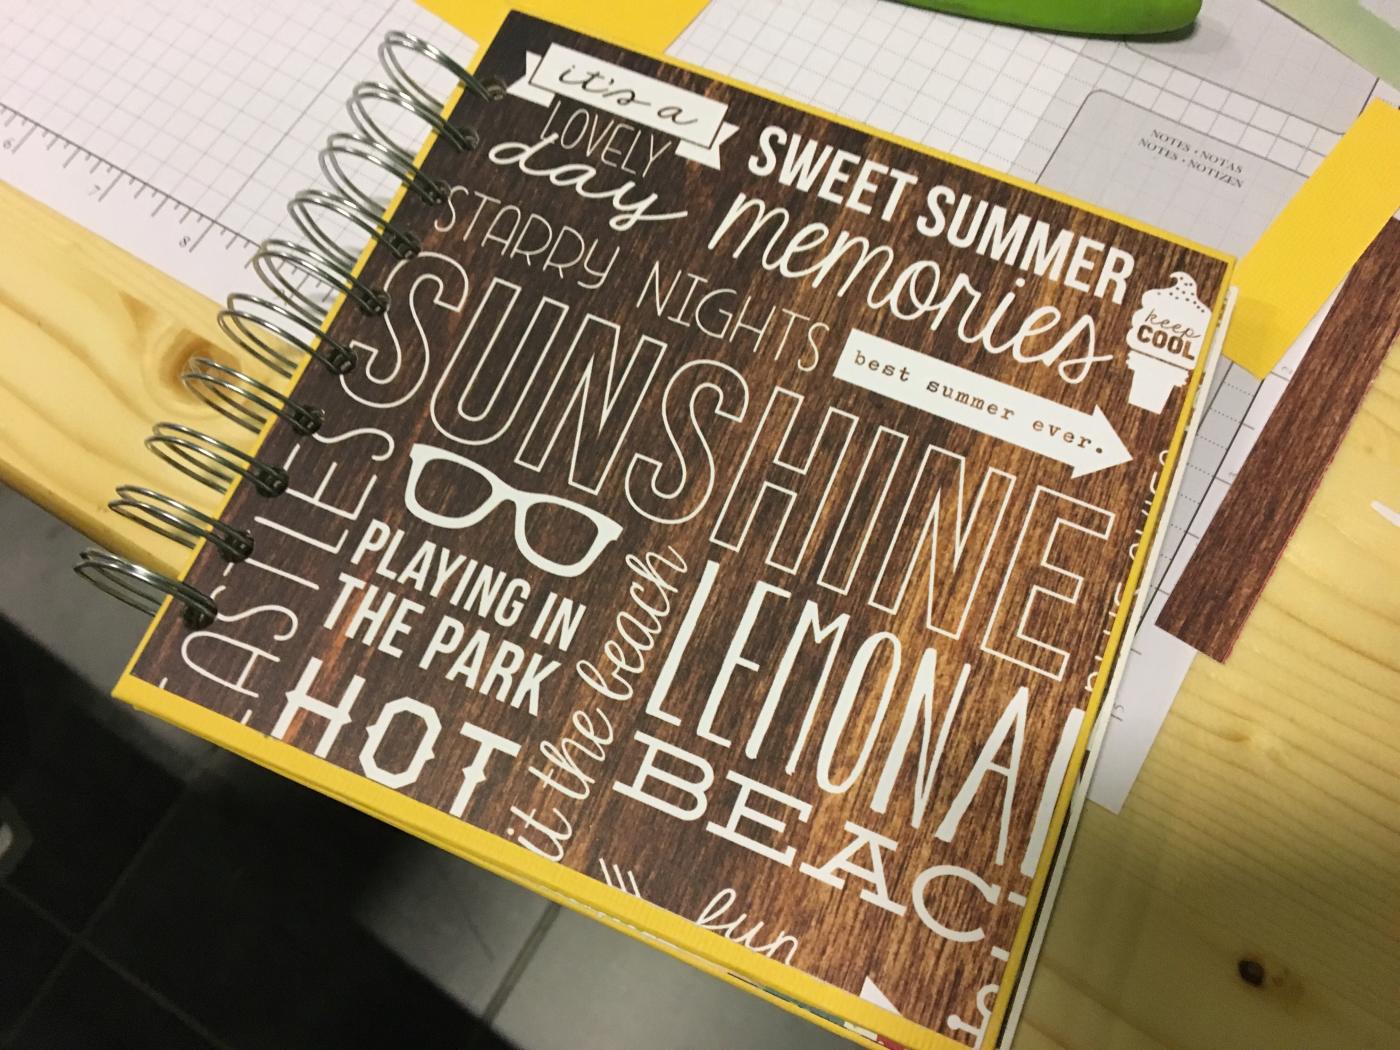 it's a
LOVELY
day
SWEET SUMMER
memories
keep
COOL
STARRY NIGHTS
best summer ever.
SUNSHINE
PLAYING IN
THE PARK
HOT
it the beach
LEMONA
BEAC
fun
NOTES • NOTAS
NOTES • NOTIZEN
6
7
8